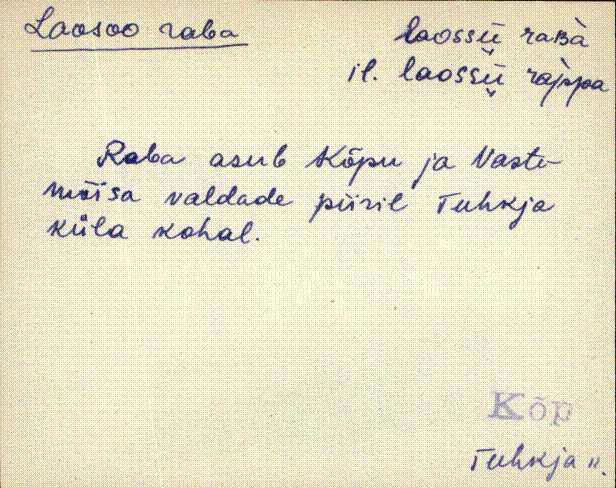 Laosoo raba
laossū̬ raʙà
il. laossū̬ ràppa
Raba asub Kõpu ja Vaste-
mõisa valdade piiril Tuhkja
küla kohal.
Kõp
Tuhkja k.